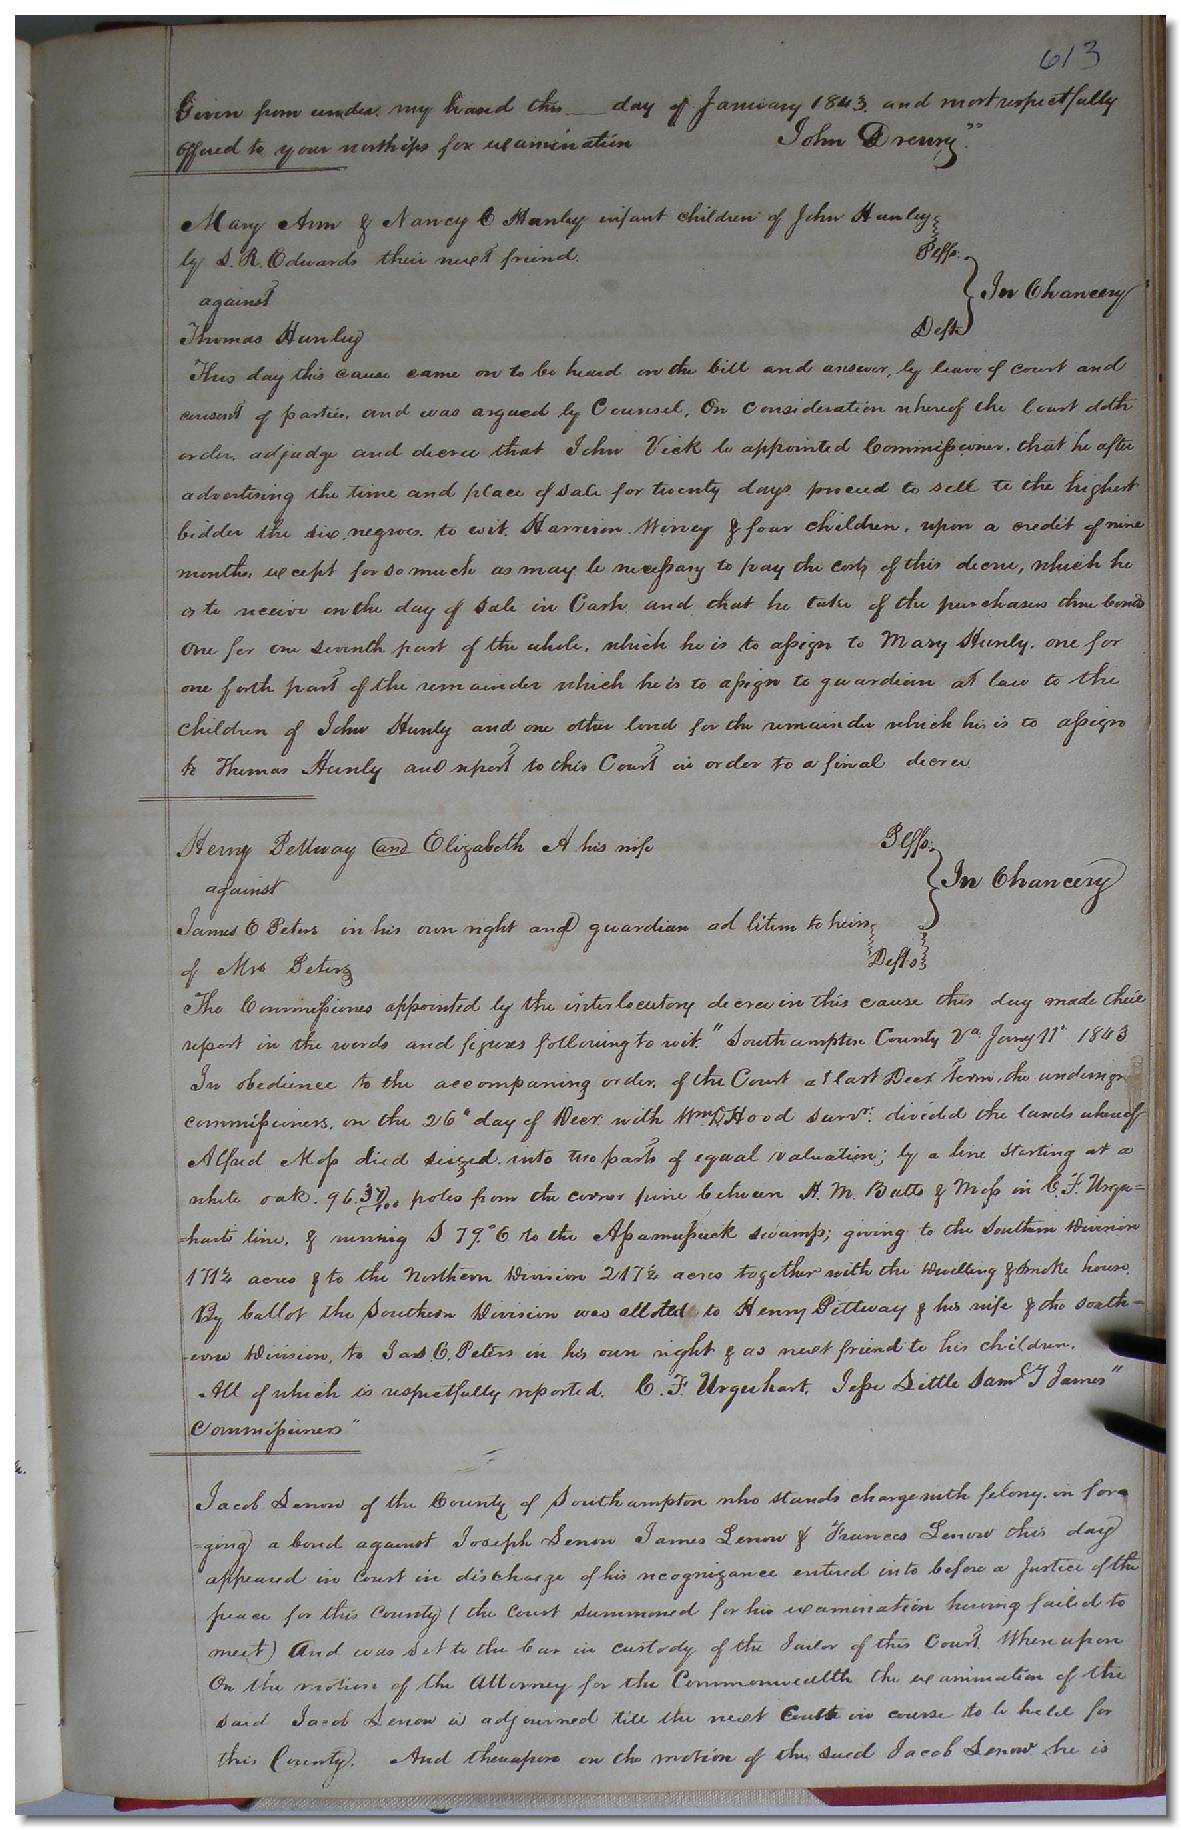 613
Given from under my hand this __ day of January 1843 and most respectfully
offered to your worships for examination John Drewry"
Mary Ann & Nancy E Hunley infant children of John Hunley
by S. R. Edwards their next friend. Plffs.
against In Chancery
Thomas Hunley Deft
This day this cause came on to be heard on the bill and answer, by leave of court and
consent of parties, and was argued by Counsel, On Consideration whereof the Court doth
order, adjudge and decree that John Vick be appointed Commissioner, that he after
advertising the time and place of sale for twenty days, proceed to sell to the highest
bidder the six negroes, to wit, Harrison, Winey & four children, upon a credit of nine
months, except for so much as may be necessary to pay the costs of this decree, which he
is to receive on the day of sale in Cash, and that he take of the purchasers three bonds
one for one seventh part of the whole, which he is to assign to Mary Hunly, one for
one forth part of the remainder which he is to assign to guardian at law to the
children of John Hunly and one other bond for the remainder which he is to assign
to Thomas Hunly and report to this Court in order to a final decree
Henry Pettway and Elizabeth A his wife Plffs.
against In Chancery
James E Peters in his own right and guardian ad litem to heirs
of Mrs Peters Defts
The Commissiones appointed by the interlocutory decree in this cause this day made their
report in the words and figures following to wit. "Southampton County Va. Jany 11th 1843
In obedience to the accompaning order, of the Court at last Decr term, the undersign
commissioners, on the 26th day of Decr with Wm D Hood survr. divided the lands whereof
Alfred Moss died seized, into two parts of equal valuation; by a line starting at a
white oak. 96.37/100 poles from the corner pine between H. M. Batts & Moss in C. F. Urqu=
=harts line, & running S 79.° E to the Assamussuck swamp; giving to the Southern Division
171½ acres & to the Northern Division 217½ acres together with the Dwelling & smoke house.
By ballot the Southern Division was alloted to Henry Pettway & his wife & the south=
-ern Division, to Jas E. Peters in his own right & as next friend to his children.
All of which is respectfully reported. C. F. Urquhart, Jesse Little Saml T James"
Commissioners"
Jacob Lenow of the County of Southampton who stands charge with felony, in for
=ging a bond against Joseph Lenow James Lenow & Frances Lenow this day
appeared in Court in discharge of his recognizance entered into before a Justice of the
peace for this County (the court summoned for his examination having failed to
meet) And was set to the bar in custody of the Jailor of this Court, Whereupon
On the motion of the Attorney for the Commonwealth the examination of the
said Jacob Lenow is adjourned till the next Court in course to be held for
this County. And thereupon on the motion of the said Jacob Lenow he is